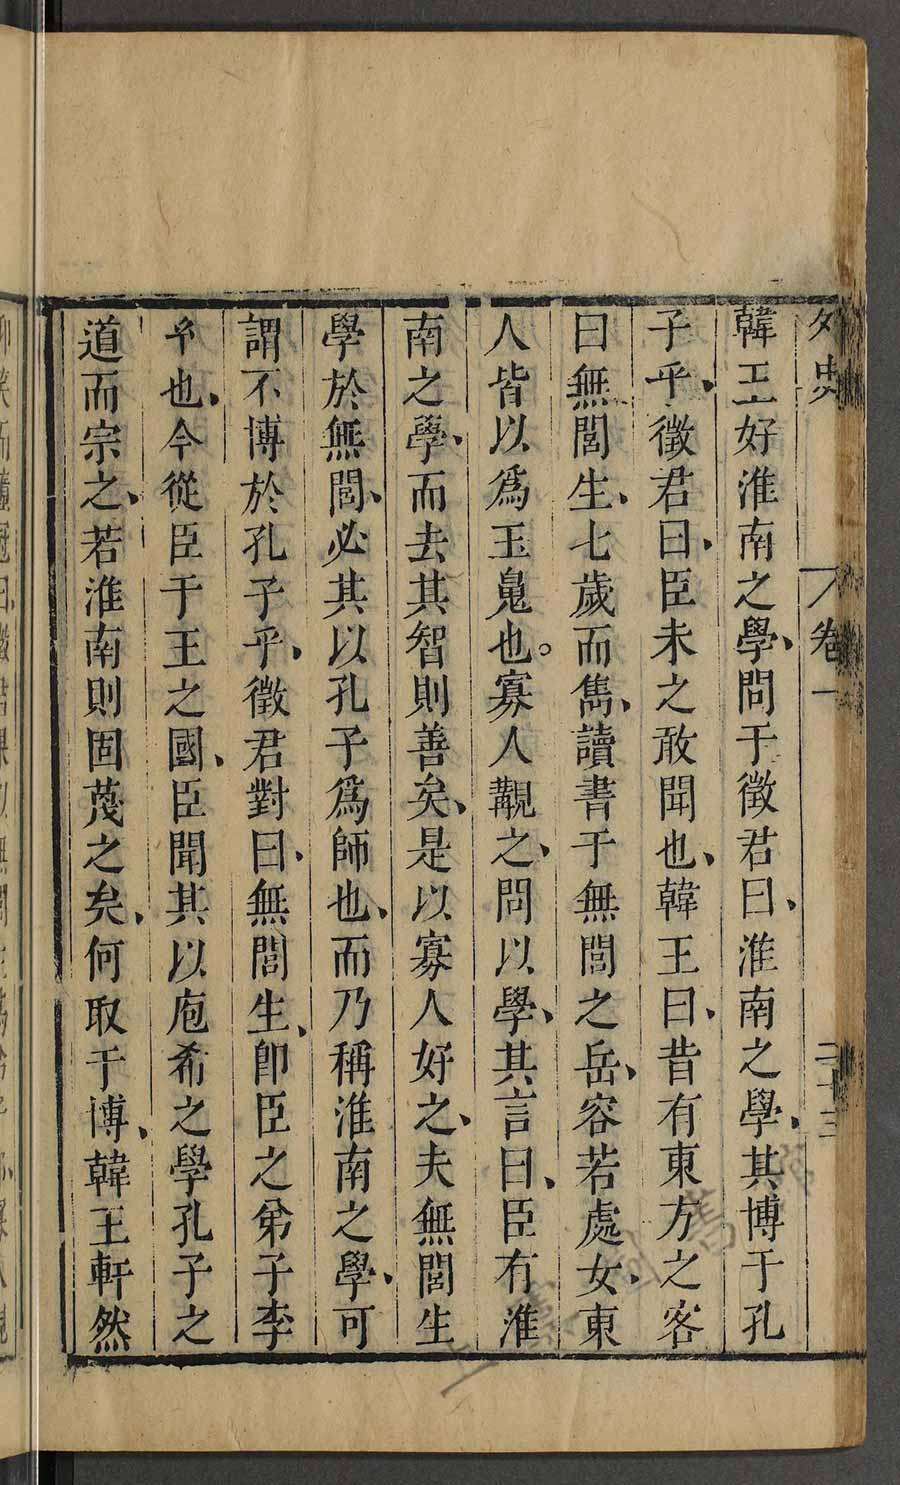 外史 卷一 二十三
韓王好淮南之學、問于徵君曰、淮南之學、其博于孔
子乎、徵君曰、臣未之敢聞也、韓王曰、昔有東方之客
曰無閭生、七歲而雋、讀書于無閭之岳、容若處女、東
人皆以爲玉鬼也。寡人覯之、問以學、其言曰、臣有淮
南之學、而去其智則善矣、是以寡人好之、夫無閭生
學於無閭、必其以孔子爲師也、而乃稱淮南之學、可
謂不博於孔子乎、徵君對曰、無閭生、卽臣之弟子李
也、今從臣于王之國、臣聞其以庖希之學孔子之
道而宗之、若淮南則固蔑之矣、何取于博、韓王軒然